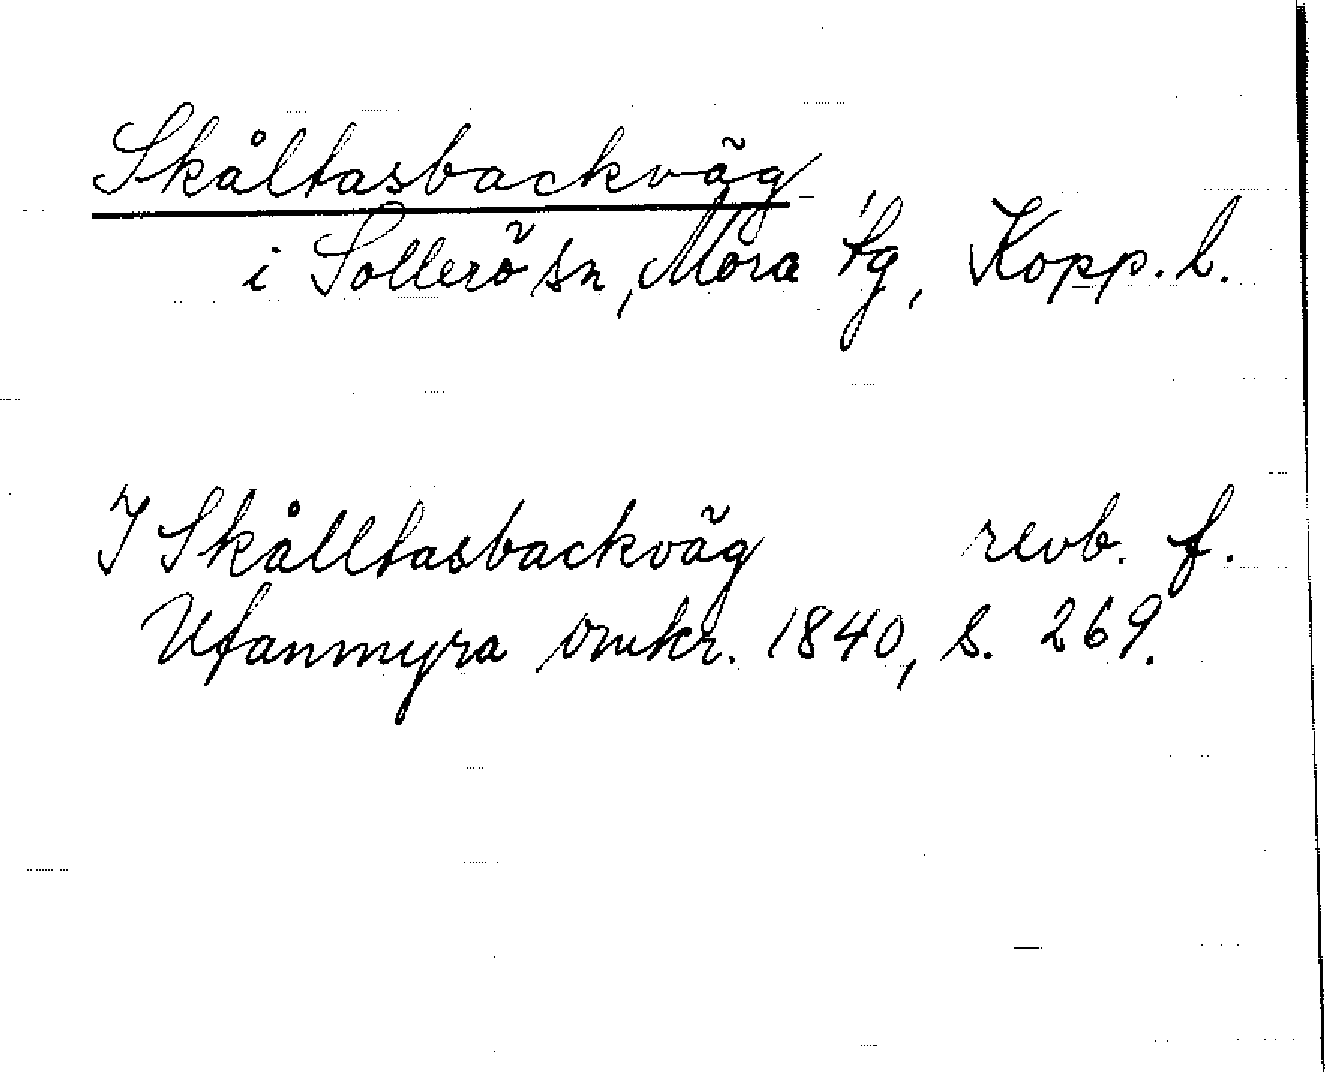 Skåltasbackväg
i Sollerö sn, Mora tg, Kopp. l.
I Skålltasbackväg revb. f.
Ufanmyra omkr. 1840, s. 269.